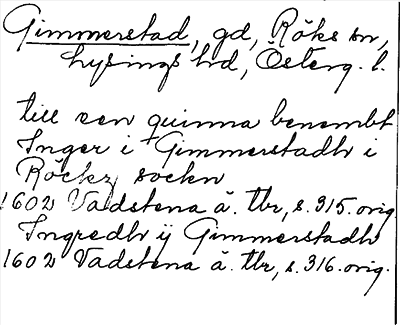 Gimmerstad, gd, Röks sn,
Lysings hd, Österg. l.
till een quinna benembt
Inger i Gimmerstadh i
Röckz sockn
1602 Vadstena ä. tbr, s. 315. orig.
Ingredh ij Gimmerstadh
1602 Vadstena ä. tbr, s. 316. orig.